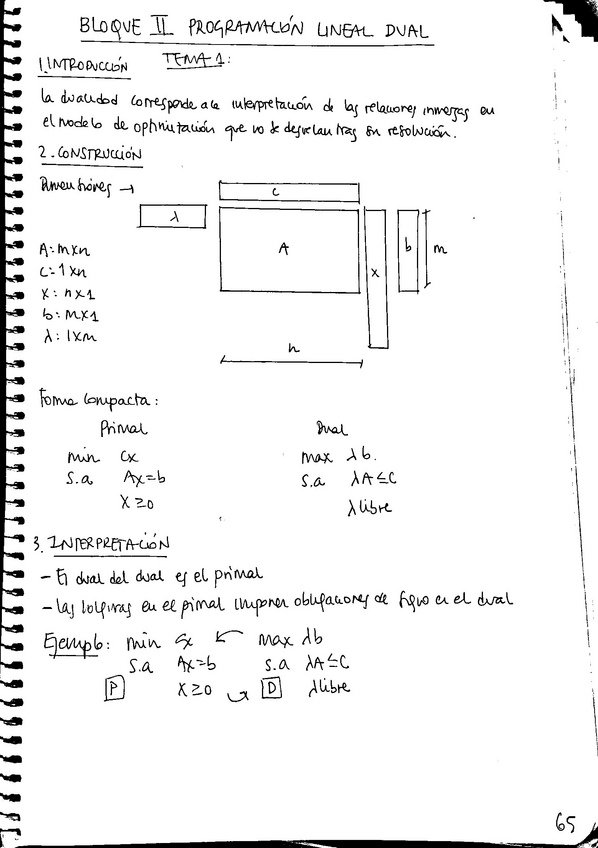 BLOQUE II PROGRAMACIÓN LINEAL DUAL
TEMA 1:
1. INTRODUCCIÓN
La dualidad corresponde a la interpretación de las relaciones inmersas en
el modelo de optimización que no se desvelan tras su resolución.
2. CONSTRUCCIÓN
Dimensiones →
c
λ
A
x
b
m
A: m×n
C: 1×n
X: n×1
b: m×1
λ: 1×m
n
Forma compacta:
Primal
Dual
min Cx
max λb.
s.a Ax=b
s.a λA≤C
X≥0
λ libre
3. INTERPRETACIÓN
- El dual del dual es el primal
- Las holguras en el primal imponen obligaciones de signo en el dual
Ejemplo: min cx ← max λb
s.a Ax=b s.a λA≤C
P X≥0 → D λ libre
65